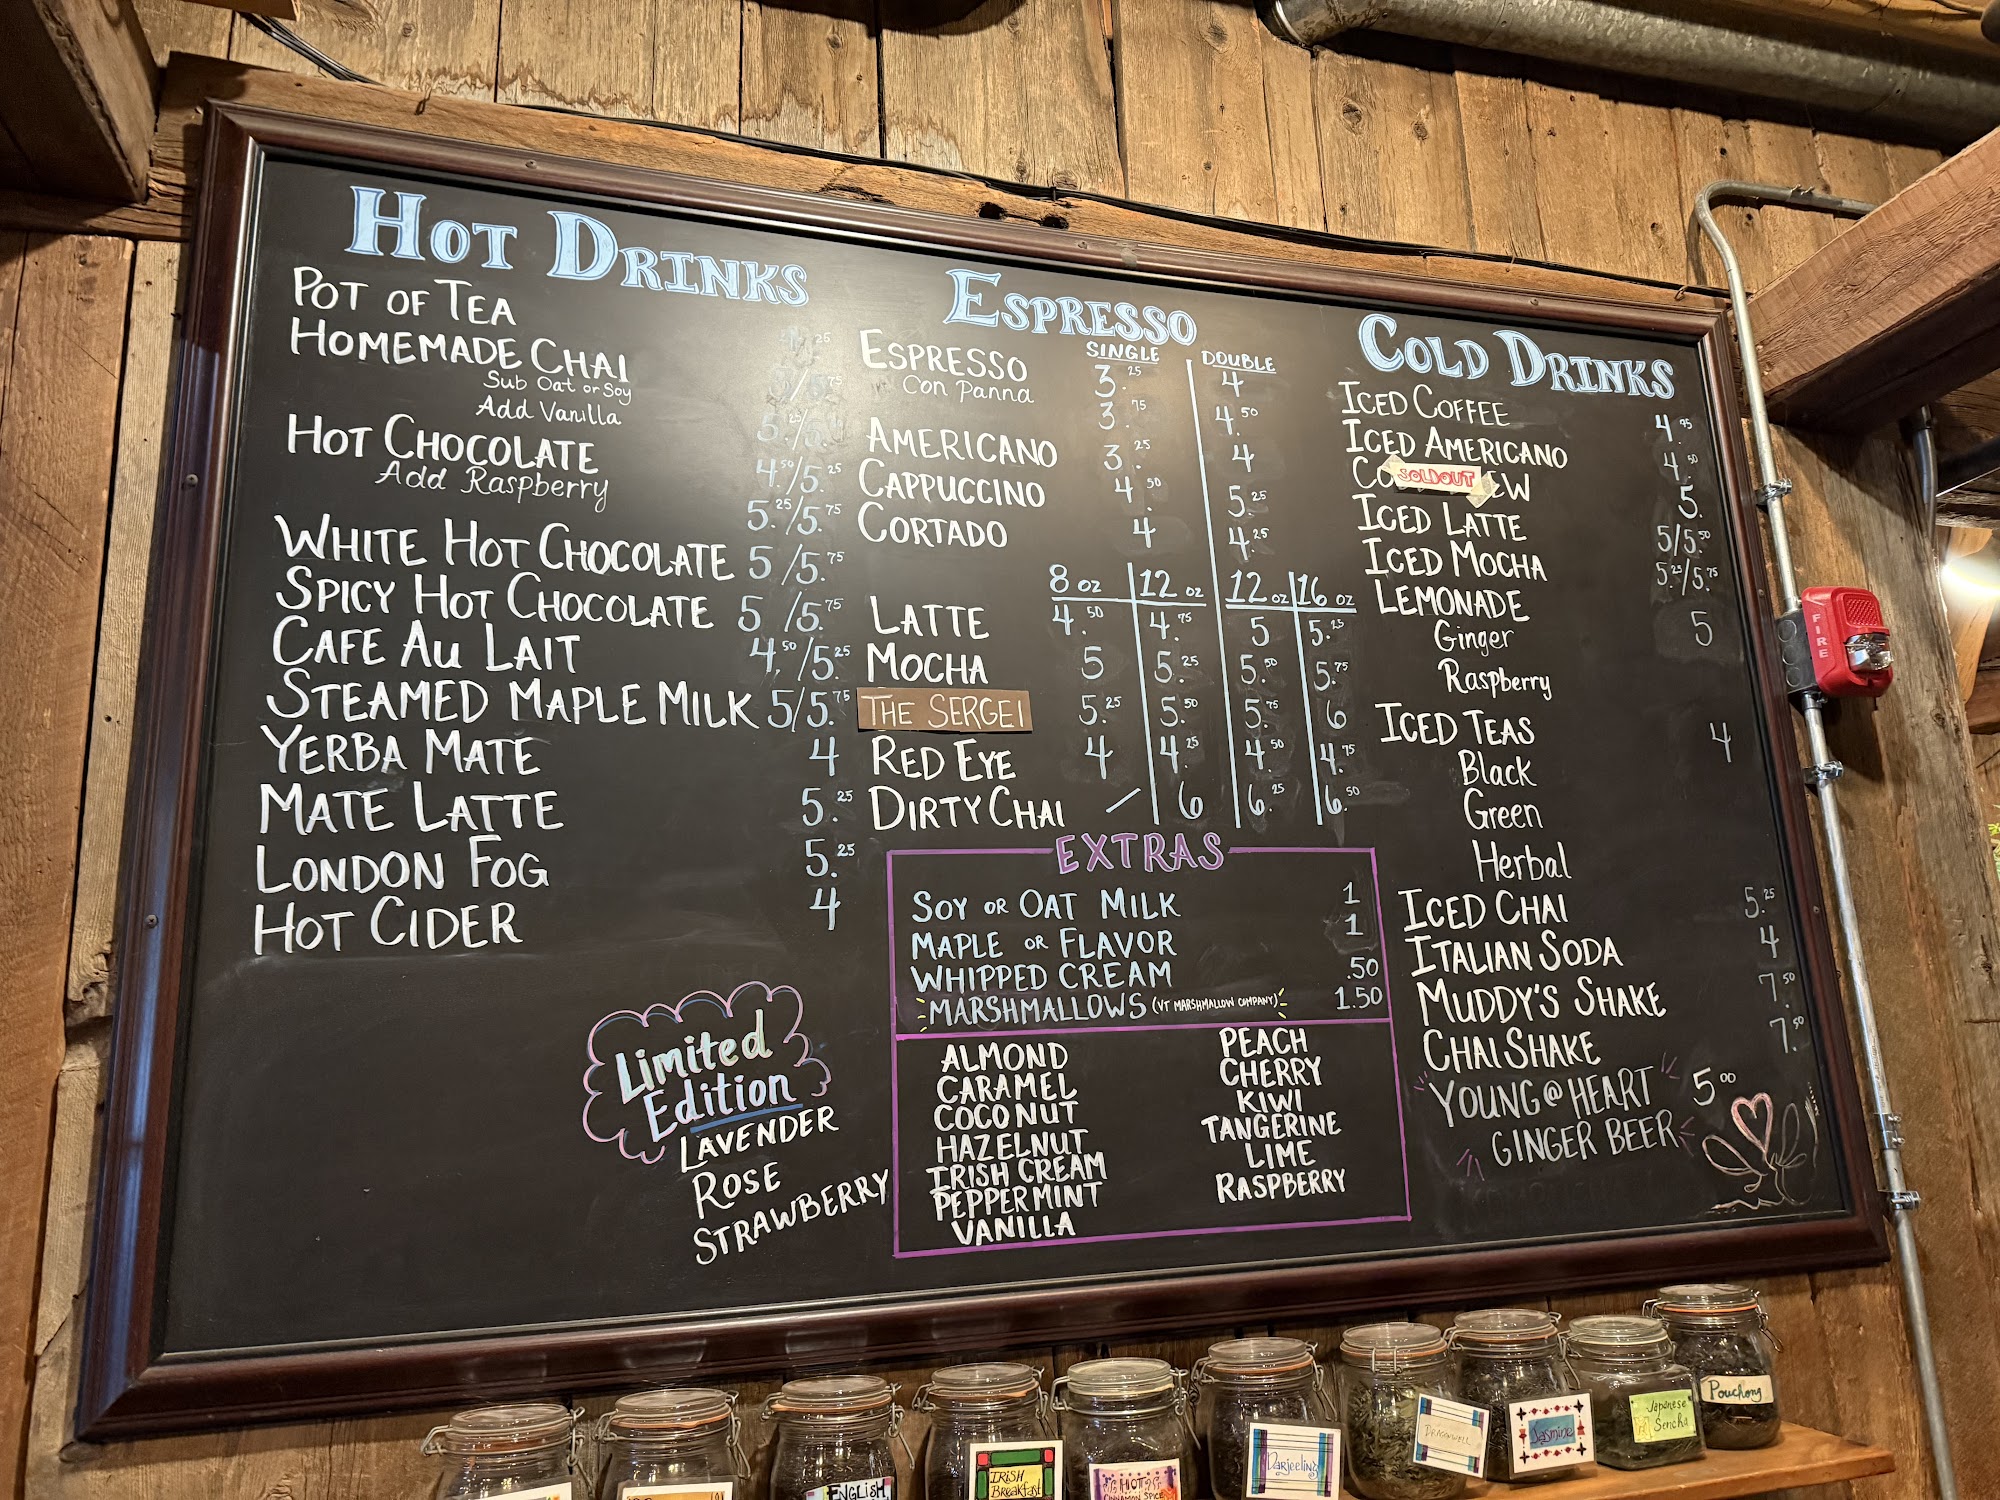 HOT DRINKS
POT OF TEA 4.25
HOMEMADE CHAI 5/5.75
Sub Oat or Soy
Add Vanilla
HOT CHOCOLATE 4.50/5.25
Add Raspberry 5.25/5.75
WHITE HOT CHOCOLATE 5/5.75
SPICY HOT CHOCOLATE 5/5.75
CAFE AU LAIT 4.50/5.25
STEAMED MAPLE MILK 5/5.75
YERBA MATE 4
MATE LATTE 5.25
LONDON FOG 5.25
HOT CIDER 4
Limited
Edition
LAVENDER
ROSE
STRAWBERRY
ESPRESSO
SINGLE DOUBLE
ESPRESSO 3.25 4
Con Panna 3.75 4.50
AMERICANO 3.25 4
CAPPUCCINO 4.50 5.25
CORTADO 4 4.25
8 oz 12 oz 12 oz 16 oz
LATTE 4.50 4.75 5 5.25
MOCHA 5 5.25 5.50 5.75
THE SERGEI 5.25 5.50 5.75 6
RED EYE 4 4.25 4.50 4.75
DIRTY CHAI / 6 6.25 6.50
EXTRAS
SOY OR OAT MILK 1
MAPLE OR FLAVOR 1
WHIPPED CREAM .50
MARSHMALLOWS (VT MARSHMALLOW COMPANY) 1.50
ALMOND
CARAMEL
COCONUT
HAZELNUT
IRISH CREAM
PEPPERMINT
VANILLA
PEACH
CHERRY
KIWI
TANGERINE
LIME
RASPBERRY
COLD DRINKS
ICED COFFEE 4.
ICED AMERICANO 4.50
CO SOLD OUT EW 5.
ICED LATTE 5/5.50
ICED MOCHA 5.25/5.75
LEMONADE 5
Ginger
Raspberry
ICED TEAS 4
Black
Green
Herbal
ICED CHAI 5.25
ITALIAN SODA 4
MUDDY'S SHAKE 7.50
CHAI SHAKE 7.50
YOUNG @ HEART 5.00
GINGER BEER
FIRE
ENGLISH
IRISH
Breakfast
HOT
CINNAMON SPICE
Darjeeling
DRAGONWELL
Jasmine
Japanese
Sencha
Pouchong